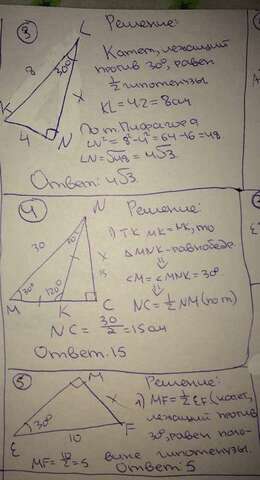 3
Решение:
Катет, лежащий
против 30°, равен
1/2 гипотенузы
KL = 4·2 = 8см
По т. Пифагора
LN² = 8²-4² = 64-16 = 48
LN = √48 = 4√3
Ответ: 4√3.
L
30°
8
x
K
4
N
4
Решение:
1) Т.К. MK = NK, то
△MNK - равнобед.
⇓
∠M = ∠MNK = 30°
⇓
NC = 1/2 NM (по т)
NC = 30/2 = 15см
Ответ: 15
N
30
x
15
30°
120°
M
K
C
5
Решение:
1) MF = 1/2 EF (катет,
лежащий против
30°, равен поло-
вине гипотенузы.
MF = 10/2 = 5
Ответ: 5
M
x
30°
E
10
F